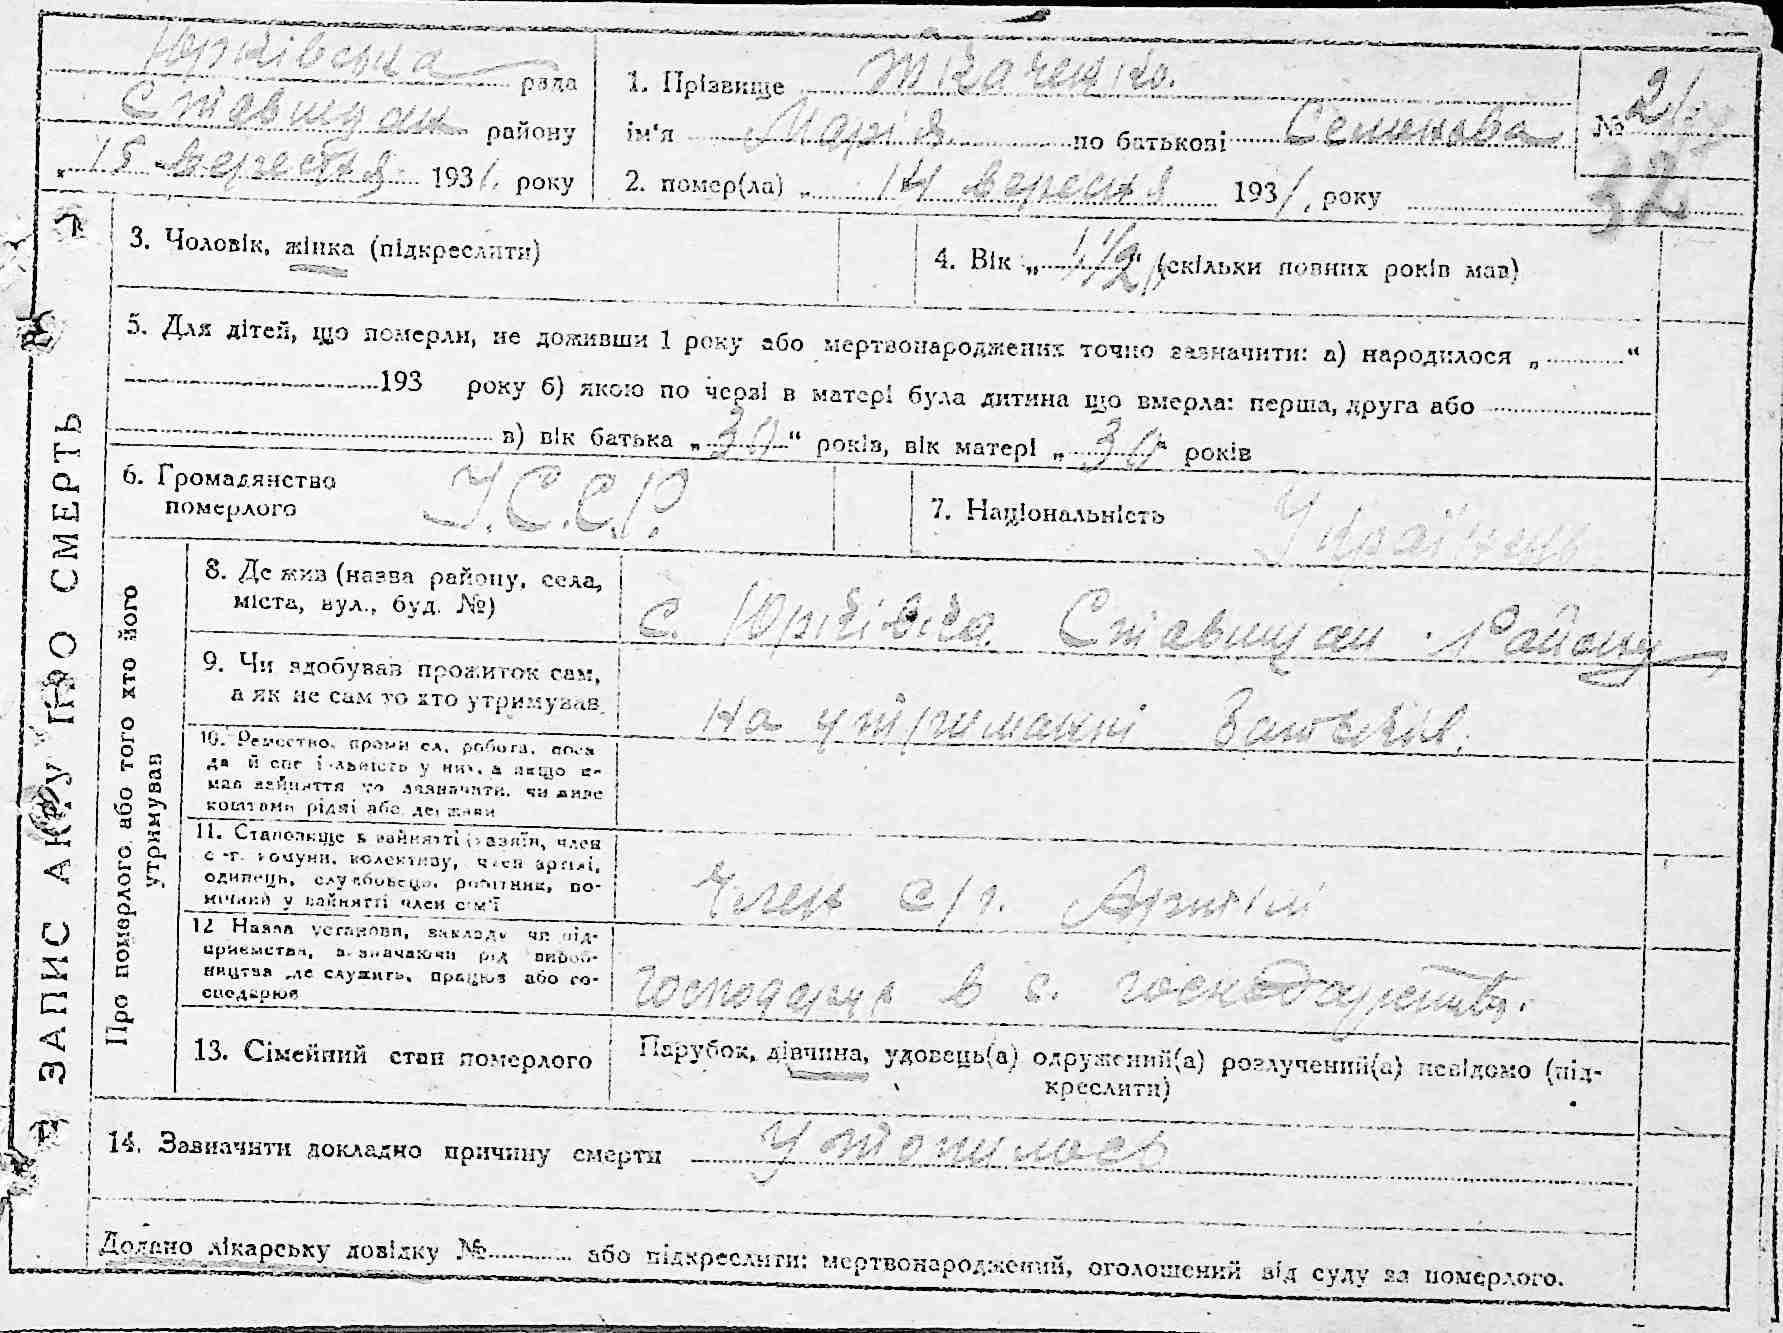 Юрківська рада
Ставищан району
„ 15 " вересня 1931. року
1. Прізвище Ткаченко.
ім'я Марія по батькові Семинова
2. помер(ла) „ 14 вересня 1931, року
№ 21
32
ЗАПИС АКТУ ПРО СМЕРТЬ
3. Чоловік, жінка (підкреслити)
4. Вік „ 1 1/2 " (скільки повних років мав)
5. Для дітей, що померли, не доживши 1 року або мертвонароджених точно зазначити: а) народилося „ “
193 року б) якою по черзі в матері була дитина що вмерла: перша, друга або
в) вік батька „ 30 “ років, вік матері „ 30 “ років
6. Громадянство
померлого
У.С.С.Р.
7. Національність Українець
Про померлого або того хто його
утримував
8. Де жив (назва району, села,
міста, вул., буд. №)
с. Юрківка Ставищан району
9. Чи здобував прожиток сам,
а як не сам то хто утримував.
на утриманні Батьків.
10. Ремество, промисел, робота, поса-
да й спеціальність у них, а якщо не
мав зайняття то зазначити, чи живе
коштами рідні або держави
11. Становище в зайнятті (хазяїн, член
с.-г. комуни, колективу, член артілі,
одинець, службовець, робітник, по-
мічний у зайнятті член сім'ї
Член С/г. Артілі
12 Назва установи, закладу чи під-
приємства, зазначаючи рід вироб-
ництва де служить, працює або го-
сподарює
господарює в с. господарстві.
13. Сімейний стан померлого
Парубок, дівчина, удовець(а) одружений(а) розлучений(а) невідомо (під-
креслити)
14. Зазначити докладно причину смерти Утопилось
Додано лікарську довідку № або підкреслити: мертвонароджений, оголошений від суду за померлого.